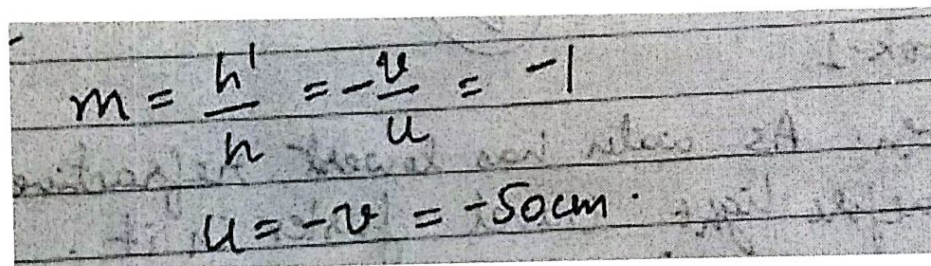 m = h'/h = -v/u = -1
u = -v = -50cm.